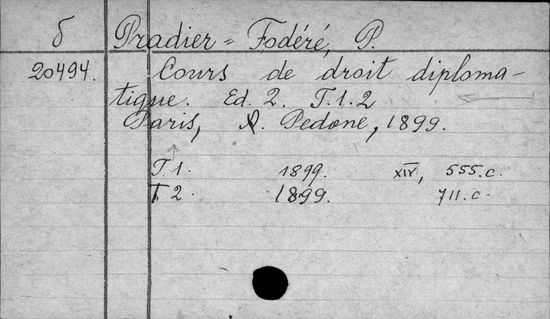 б Pradier=Fodéré, P.
20494. Cours de droit diploma-
tique. Ed. 2. T. 1. 2
Paris, A. Pedone, 1899.
T. 1 1899. XIV, 555.c.
T. 2 1899. 711.c.